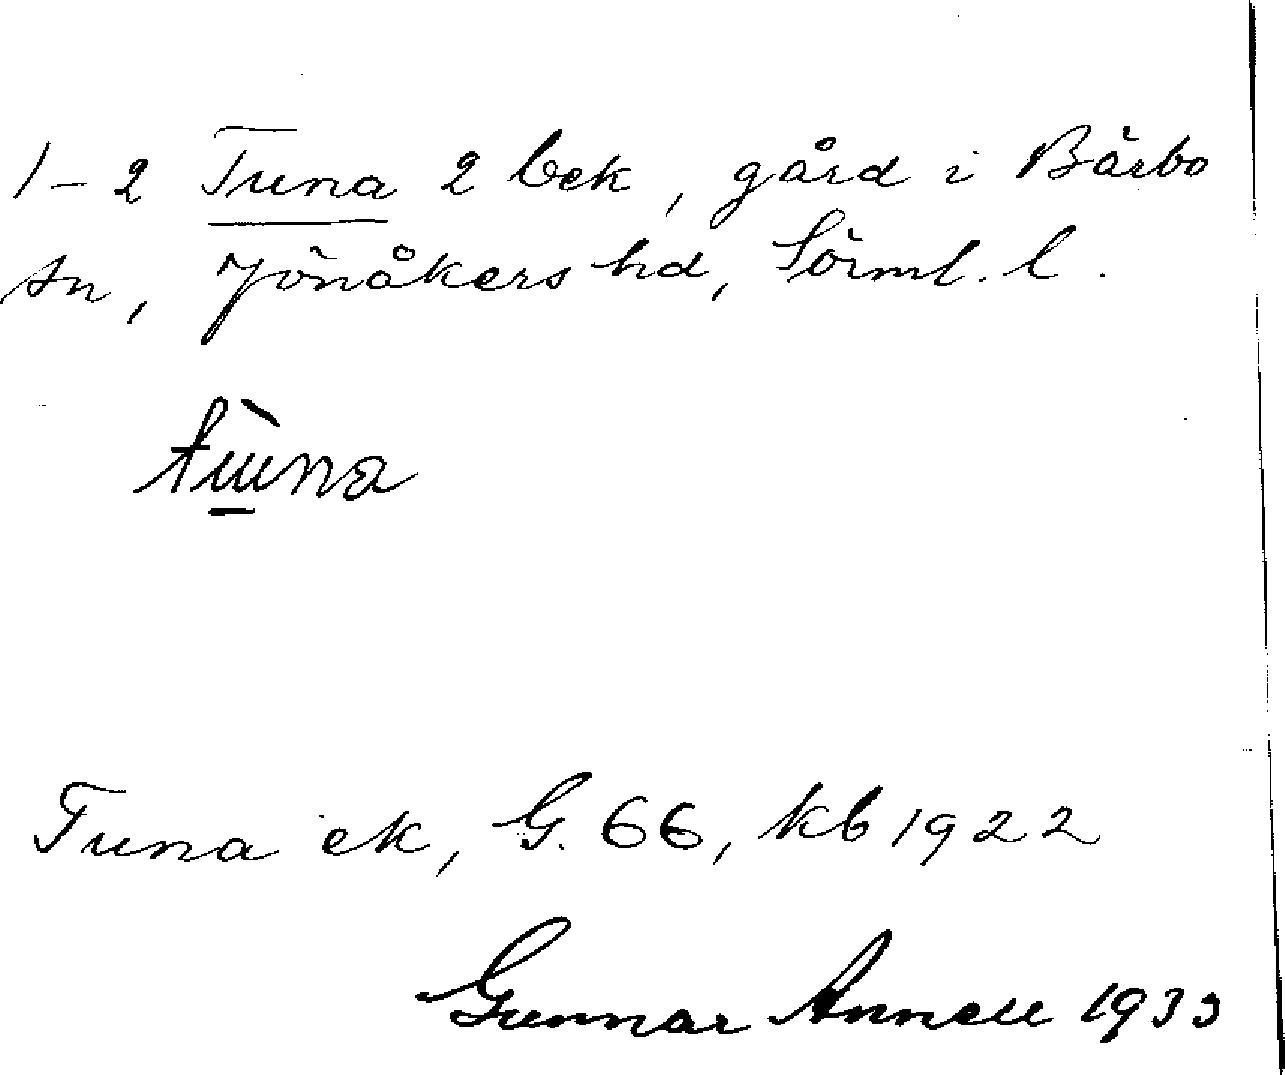 1-2 Tuna 2 bek, gård i Bärbo
sn, Jönåkers hd, Sörml. l.
tùna
Tuna ek, G. 66, kb 1922
Gunnar Annell 1933